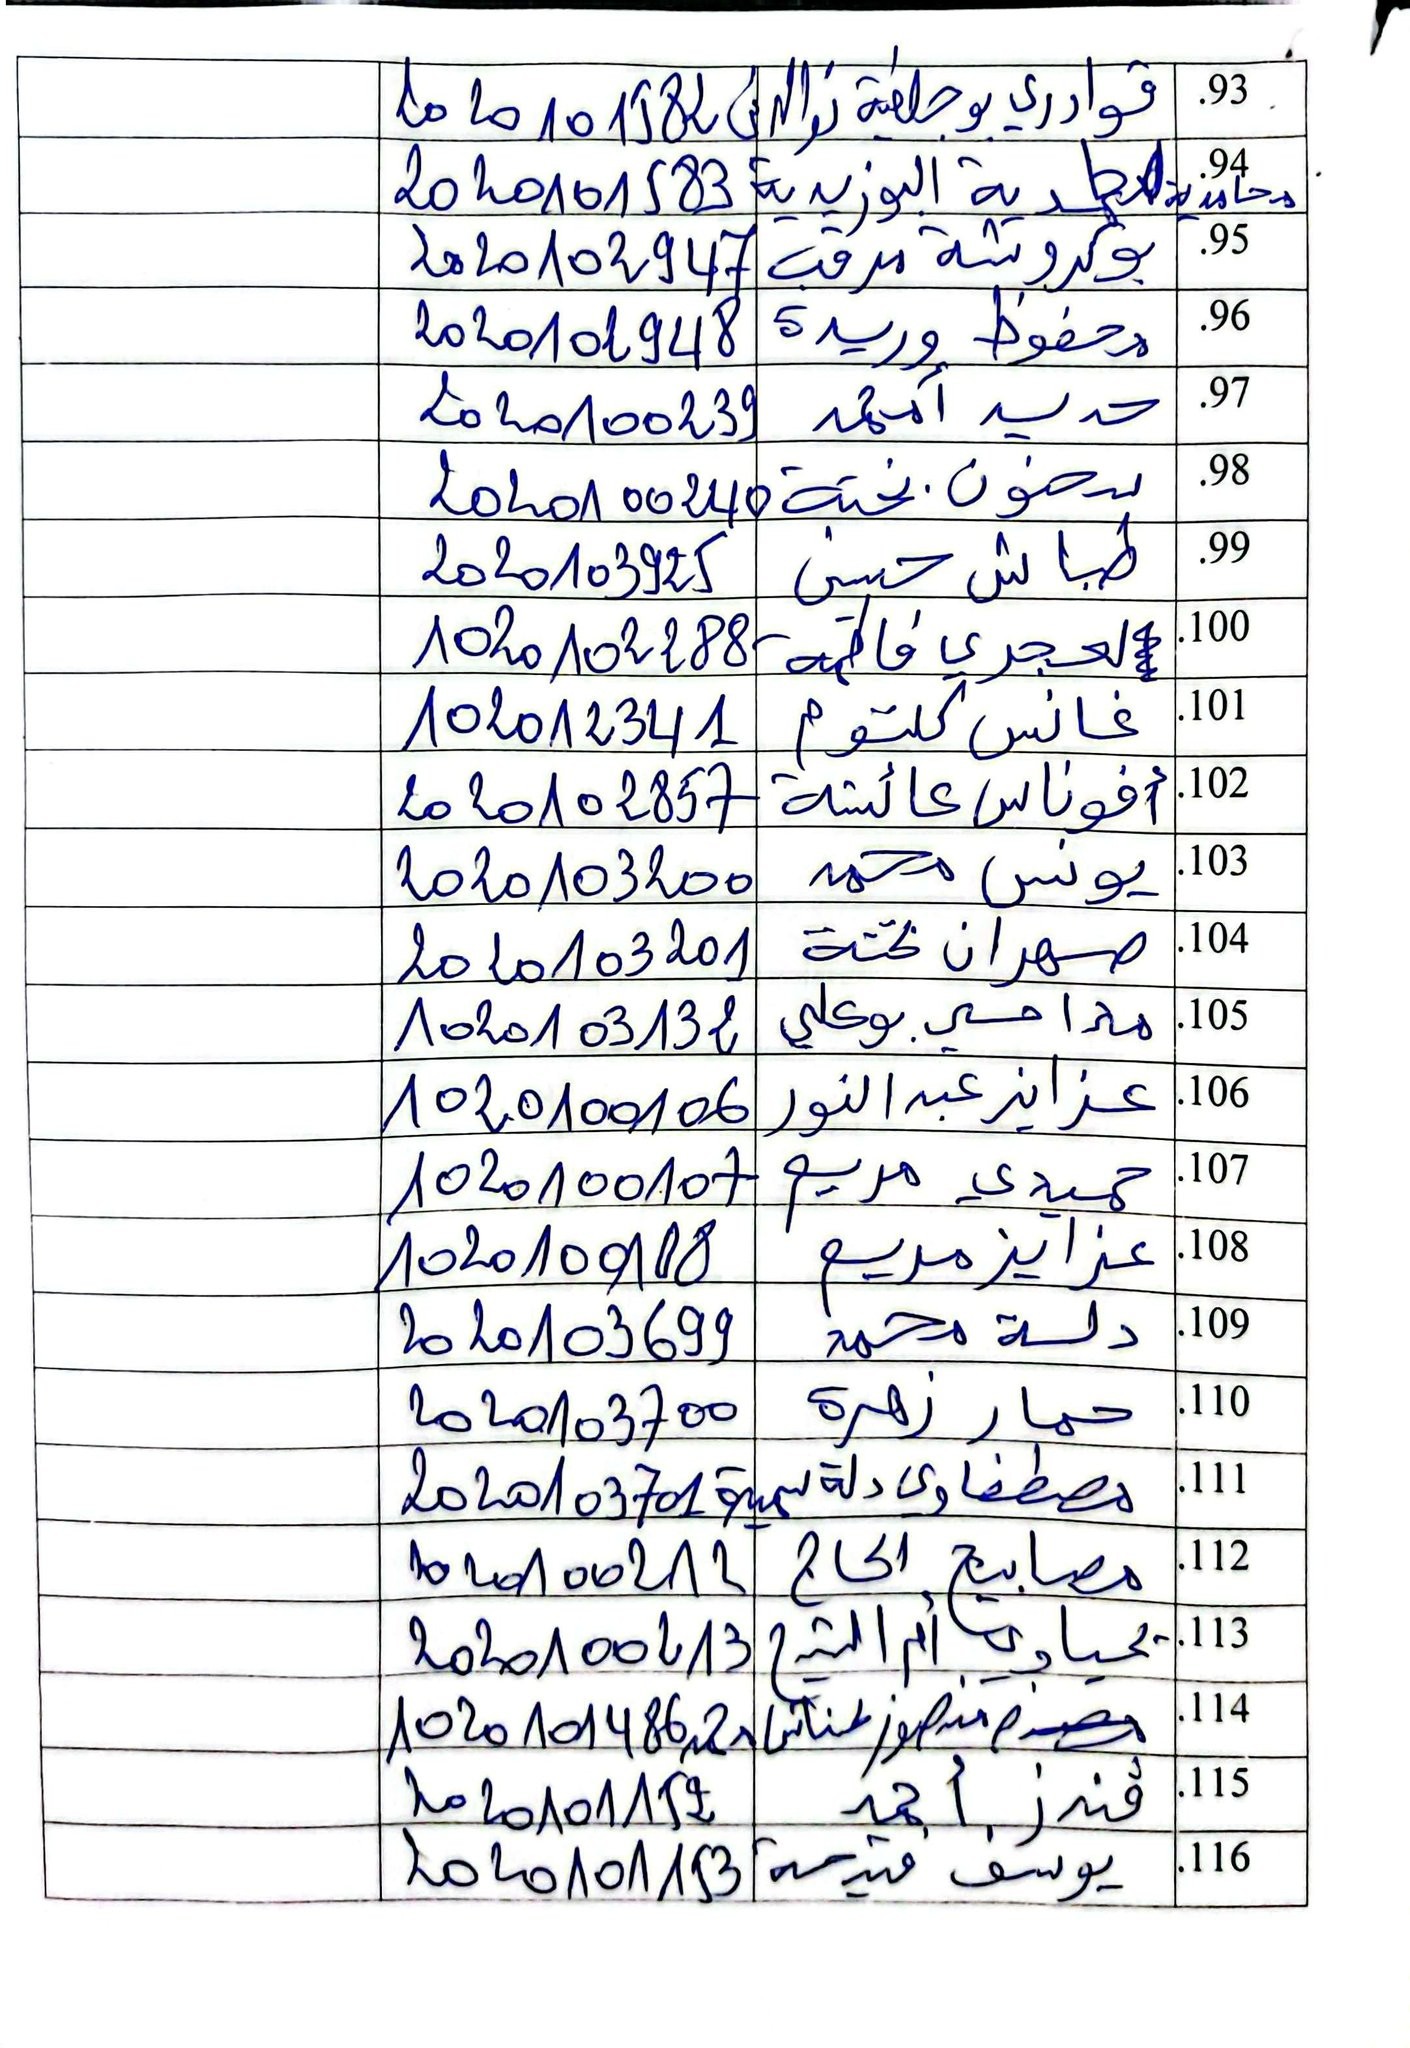 .93 قوادري بوجلطية نورالدين 2020101582
.94 محامدية البوزيدية 2020101583
.95 بوكروشة مرقب 2020102947
.96 محفوظ وريدة 2020102948
.97 حديد أمحمد 2020100239
.98 سحنون بختة 2020100240
.99 طباش حسن 2020103925
.100 لعجري فاطمة 1020102288
.101 غانس كلتوم 1020123411
.102 أفوناس عائشة 2020102857
.103 يونس محمد 2020103200
.104 صهران بختة 2020103201
.105 بوعلي 1020103132
.106 عزايز عبد النور 1020100106
.107 حميدي مريم 1020100107
.108 عزايز مريم
.109 دلسة محمد 2020103699
.110 حمار زهرة 2020103700
.111 مصطفاوي دلة سمية 2020103701
.112 مصابيح الحاج 2020100212
.113 يحياوي أم الشيخ 2020100213
.114 منصور 1020101486
.115 قندز أحمد 2020101152
.116 يوسف فتيحة 2020101153